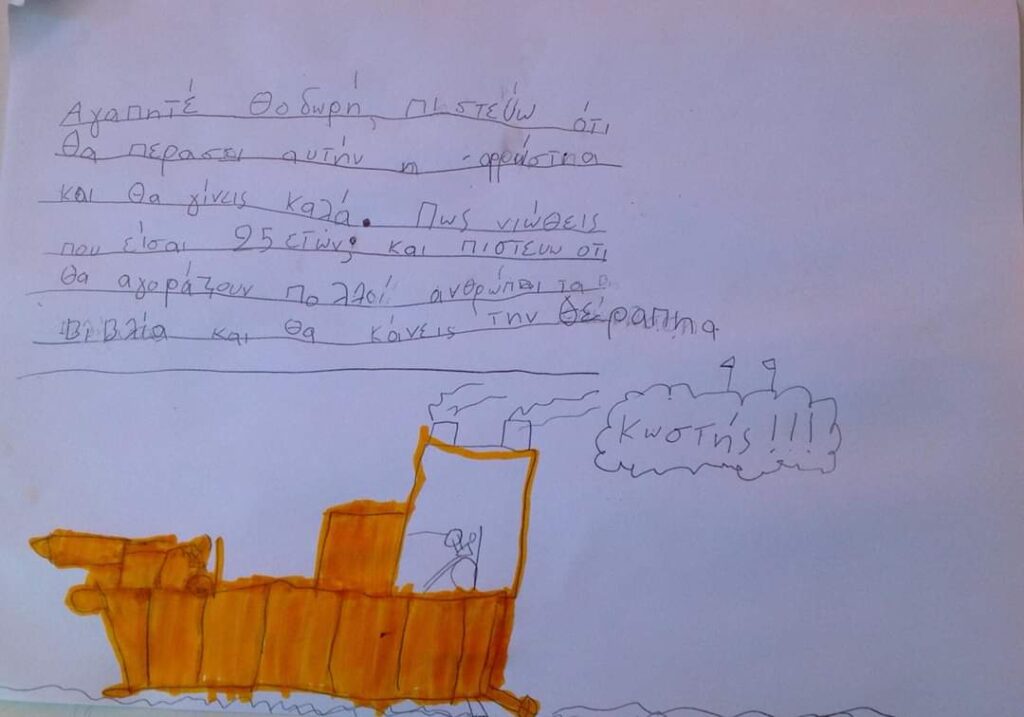 Αγαπητέ Θοδωρή, πιστεύω ότι
θα περάσει αυτήν η αρρώστια
και θα γίνεις καλά. Πως νιώθεις
που είσαι 25 ετών; και πιστευω οτι
θα αγοράζουν πολλοί ανθρώποι τα
Βιβλία και θα κάνεις την θείραπηα
Κωστής!!!